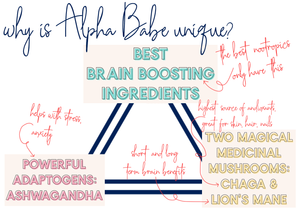 why is Alpha Babe unique?
BEST
BRAIN BOOSTING
INGREDIENTS
the best nootropics
only have this
helps with stress,
anxiety
highest source of antioxidants,
great for skin, hair, nails
short and long
term brain benefits
POWERFUL
ADAPTOGENS:
ASHWAGANDHA
TWO MAGICAL
MEDICINAL
MUSHROOMS:
CHAGA &
LION'S MANE